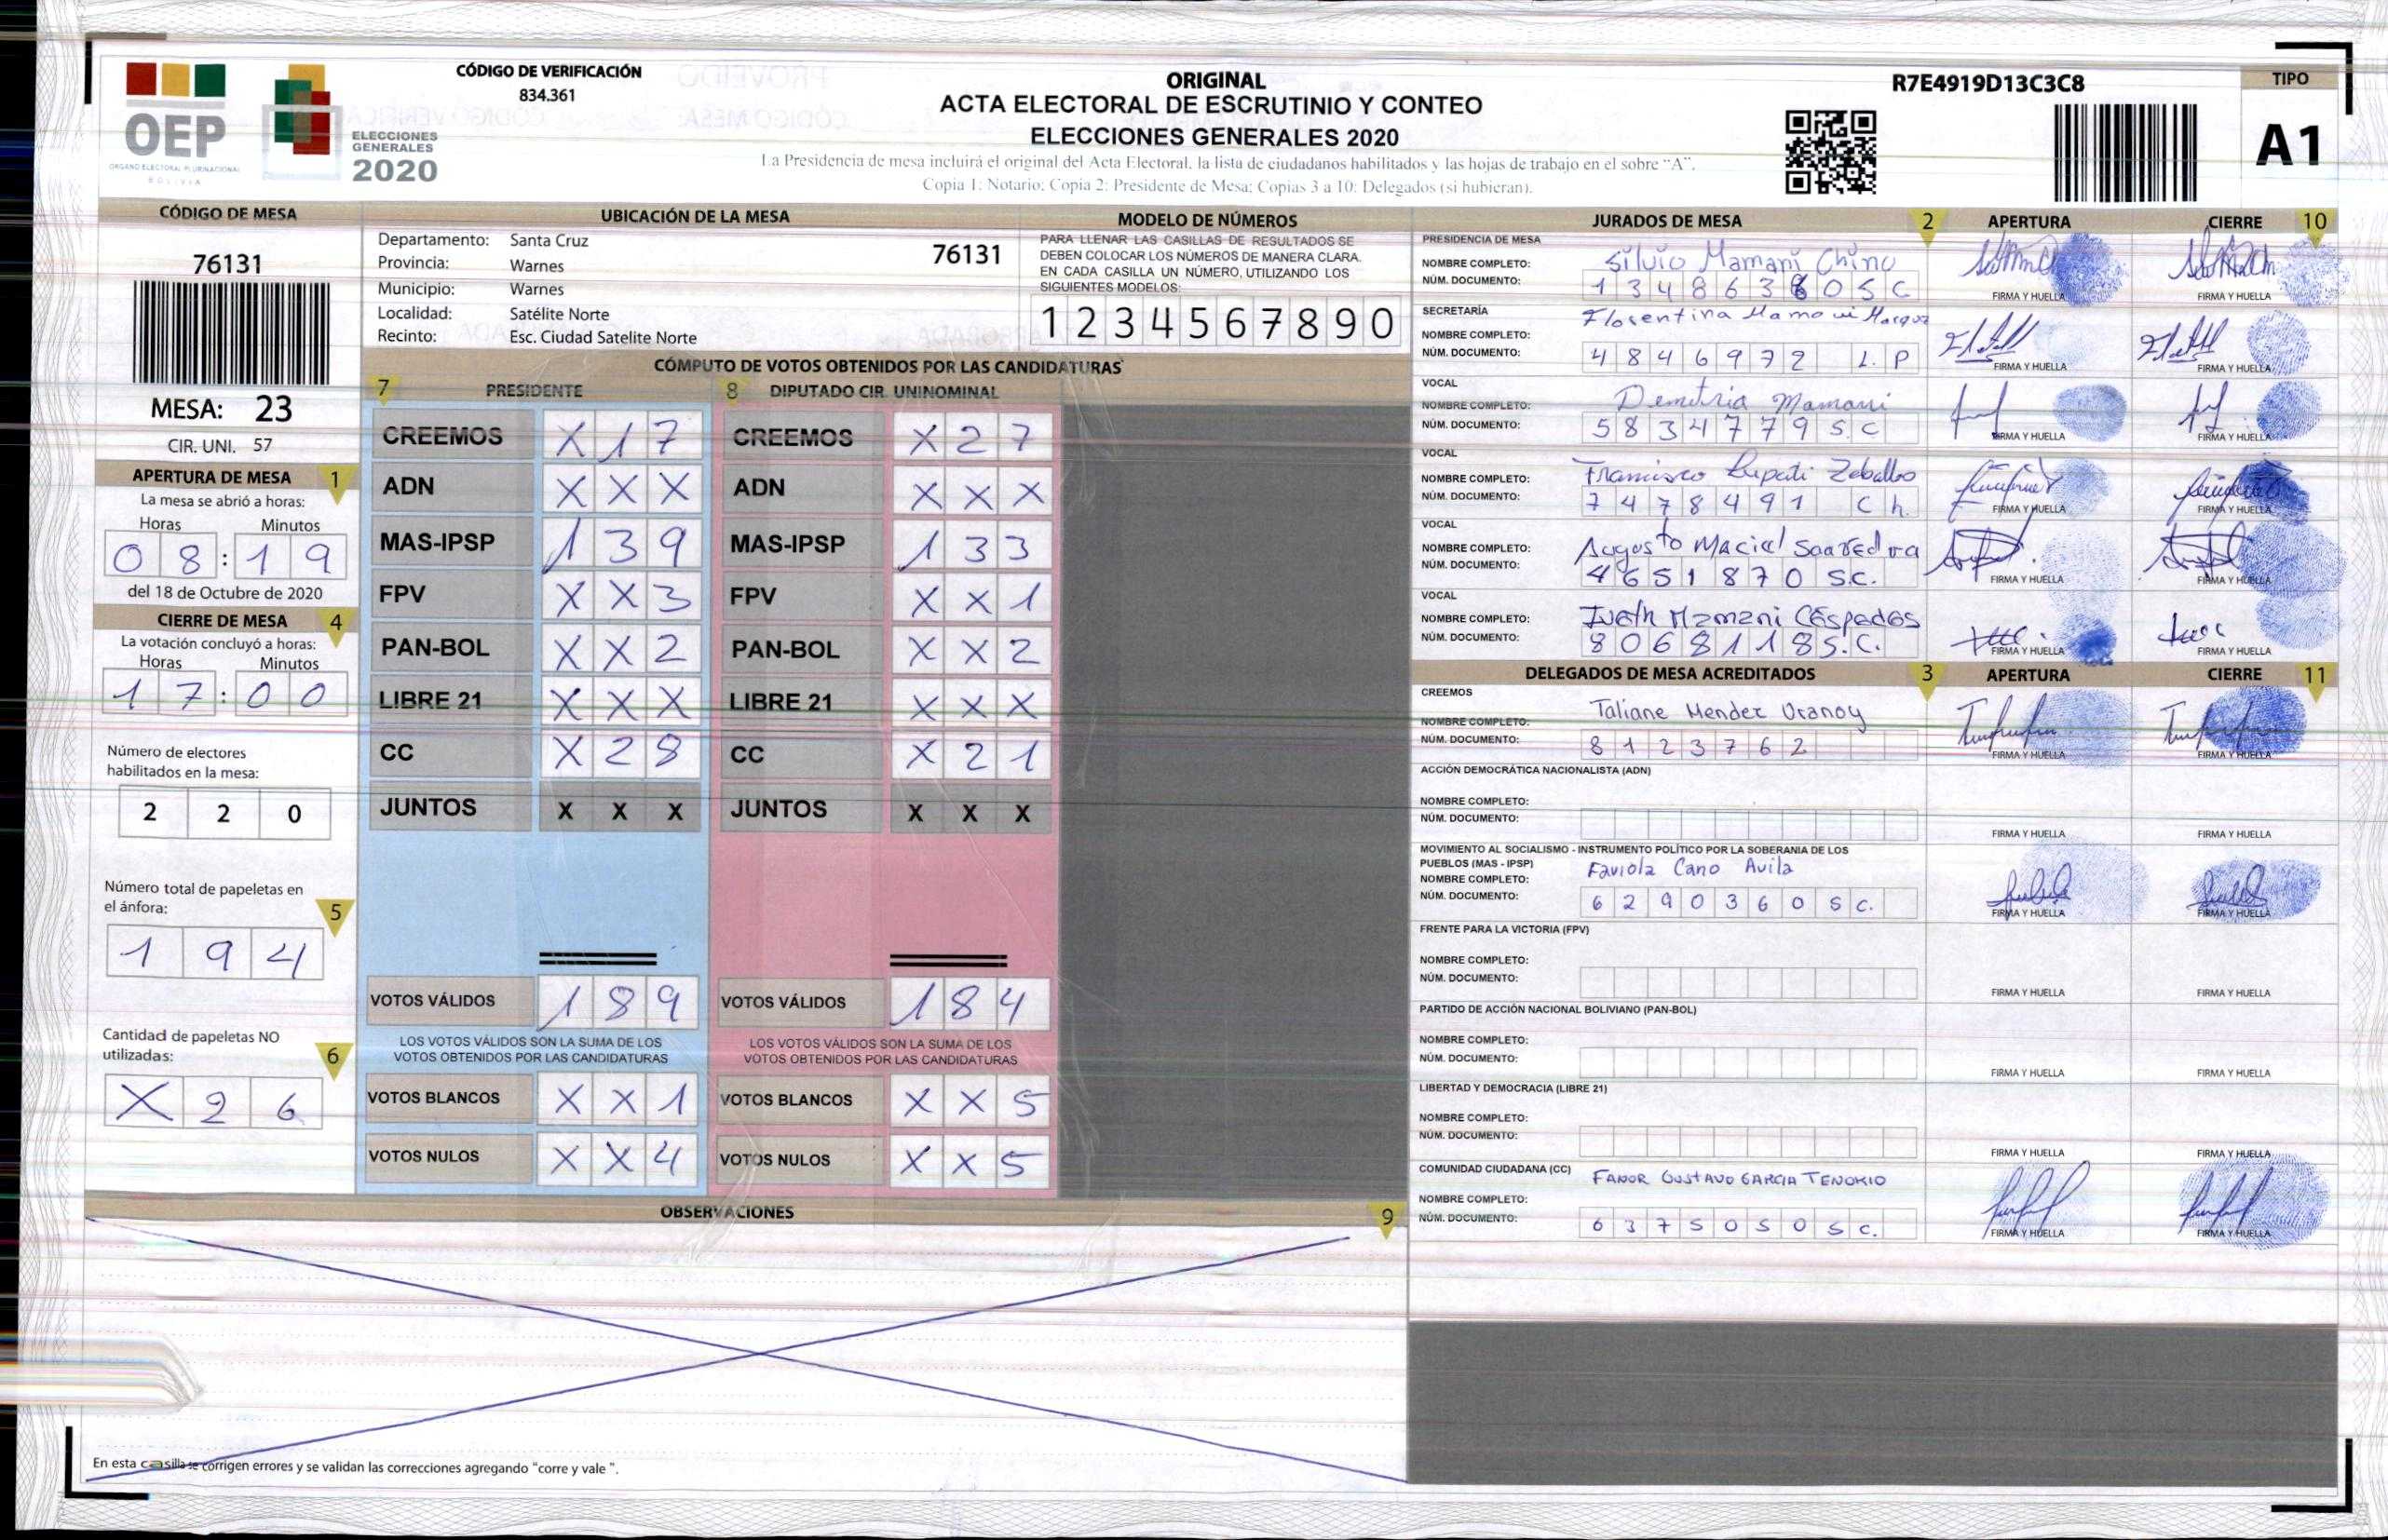 OEP
ÓRGANO ELECTORAL PLURINACIONAL
BOLIVIA
ELECCIONES
GENERALES
2020
CÓDIGO DE VERIFICACIÓN
834.361
ORIGINAL
ACTA ELECTORAL DE ESCRUTINIO Y CONTEO
ELECCIONES GENERALES 2020
La Presidencia de mesa incluirá el original del Acta Electoral, la lista de ciudadanos habilitados y las hojas de trabajo en el sobre "A".
Copia 1: Notario; Copia 2: Presidente de Mesa; Copias 3 a 10: Delegados (si hubieran).
R7E4919D13C3C8
TIPO
A1
CÓDIGO DE MESA
76131
MESA: 23
CIR. UNI. 57
APERTURA DE MESA 1
La mesa se abrió a horas:
Horas Minutos
08:19
del 18 de Octubre de 2020
CIERRE DE MESA 4
La votación concluyó a horas:
Horas Minutos
17:00
Número de electores
habilitados en la mesa:
2 2 0
Número total de papeletas en
el ánfora: 5
1 9 4
Cantidad de papeletas NO
utilizadas: 6
X 2 6
UBICACIÓN DE LA MESA
Departamento: Santa Cruz
76131
Provincia: Warnes
Municipio: Warnes
Localidad: Satélite Norte
Recinto: Esc. Ciudad Satelite Norte
MODELO DE NÚMEROS
PARA LLENAR LAS CASILLAS DE RESULTADOS SE
DEBEN COLOCAR LOS NÚMEROS DE MANERA CLARA.
EN CADA CASILLA UN NÚMERO, UTILIZANDO LOS
SIGUIENTES MODELOS:
1 2 3 4 5 6 7 8 9 0
CÓMPUTO DE VOTOS OBTENIDOS POR LAS CANDIDATURAS
7 PRESIDENTE 8 DIPUTADO CIR. UNINOMINAL
CREEMOS X 1 7 CREEMOS X 2 7
ADN X X X ADN X X X
MAS-IPSP 1 3 9 MAS-IPSP 1 3 3
FPV X X 3 FPV X X 1
PAN-BOL X X 2 PAN-BOL X X 2
LIBRE 21 X X X LIBRE 21 X X X
CC X 2 8 CC X 2 1
JUNTOS X X X JUNTOS X X X
VOTOS VÁLIDOS 1 8 9 VOTOS VÁLIDOS 1 8 4
LOS VOTOS VÁLIDOS SON LA SUMA DE LOS LOS VOTOS VÁLIDOS SON LA SUMA DE LOS
VOTOS OBTENIDOS POR LAS CANDIDATURAS VOTOS OBTENIDOS POR LAS CANDIDATURAS
VOTOS BLANCOS X X 1 VOTOS BLANCOS X X 5
VOTOS NULOS X X 4 VOTOS NULOS X X 5
OBSERVACIONES 9
En esta casilla se corrigen errores y se validan las correcciones agregando "corre y vale ".
JURADOS DE MESA 2 APERTURA CIERRE 10
PRESIDENCIA DE MESA
NOMBRE COMPLETO: Silvio Mamani Chino
NÚM. DOCUMENTO: 13486380SC
FIRMA Y HUELLA FIRMA Y HUELLA
SECRETARÍA
NOMBRE COMPLETO: Florentina Mamani Marquz
NÚM. DOCUMENTO: 4846972 L.P
FIRMA Y HUELLA FIRMA Y HUELLA
VOCAL
NOMBRE COMPLETO: Demitria Mamani
NÚM. DOCUMENTO: 5834779 S.C
FIRMA Y HUELLA FIRMA Y HUELLA
VOCAL
NOMBRE COMPLETO: Francisco Lupati Zeballo
NÚM. DOCUMENTO: 7478491 Ch.
FIRMA Y HUELLA FIRMA Y HUELLA
VOCAL
NOMBRE COMPLETO: Augusto Maciel Saavedra
NÚM. DOCUMENTO: 4651870 S.C.
FIRMA Y HUELLA FIRMA Y HUELLA
VOCAL
NOMBRE COMPLETO: Iveth Mamani Céspedes
NÚM. DOCUMENTO: 8068118 S.C.
FIRMA Y HUELLA FIRMA Y HUELLA
DELEGADOS DE MESA ACREDITADOS 3 APERTURA CIERRE 11
CREEMOS
NOMBRE COMPLETO: Taliane Mendez Uranoy
NÚM. DOCUMENTO: 8123762
FIRMA Y HUELLA FIRMA Y HUELLA
ACCIÓN DEMOCRÁTICA NACIONALISTA (ADN)
NOMBRE COMPLETO:
NÚM. DOCUMENTO:
FIRMA Y HUELLA FIRMA Y HUELLA
MOVIMIENTO AL SOCIALISMO - INSTRUMENTO POLÍTICO POR LA SOBERANIA DE LOS
PUEBLOS (MAS - IPSP)
NOMBRE COMPLETO: Faviola Cano Avila
NÚM. DOCUMENTO: 6290360 SC.
FIRMA Y HUELLA FIRMA Y HUELLA
FRENTE PARA LA VICTORIA (FPV)
NOMBRE COMPLETO:
NÚM. DOCUMENTO:
FIRMA Y HUELLA FIRMA Y HUELLA
PARTIDO DE ACCIÓN NACIONAL BOLIVIANO (PAN-BOL)
NOMBRE COMPLETO:
NÚM. DOCUMENTO:
FIRMA Y HUELLA FIRMA Y HUELLA
LIBERTAD Y DEMOCRACIA (LIBRE 21)
NOMBRE COMPLETO:
NÚM. DOCUMENTO:
FIRMA Y HUELLA FIRMA Y HUELLA
COMUNIDAD CIUDADANA (CC)
NOMBRE COMPLETO: FANOR GUSTAVO GARCIA TENORIO
NÚM. DOCUMENTO: 6375050 SC.
FIRMA Y HUELLA FIRMA Y HUELLA